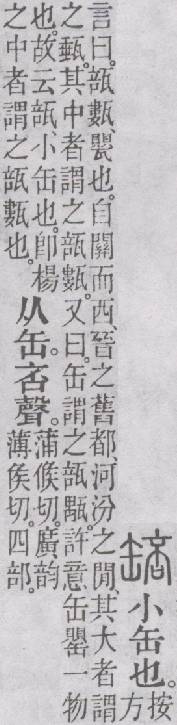 䍌小缶也。按方
言曰。瓿甊、甖也。自關而西、晉之舊都、河汾之閒、其大者謂
之甀。其中者謂之瓿甊。又曰。缶謂之瓿㼶。許意缶罌一物
也。故云瓿、小缶也。卽楊
之中者謂之瓿甊也。
从缶咅聲。
蒲候切。廣韵
薄侯切。四部。